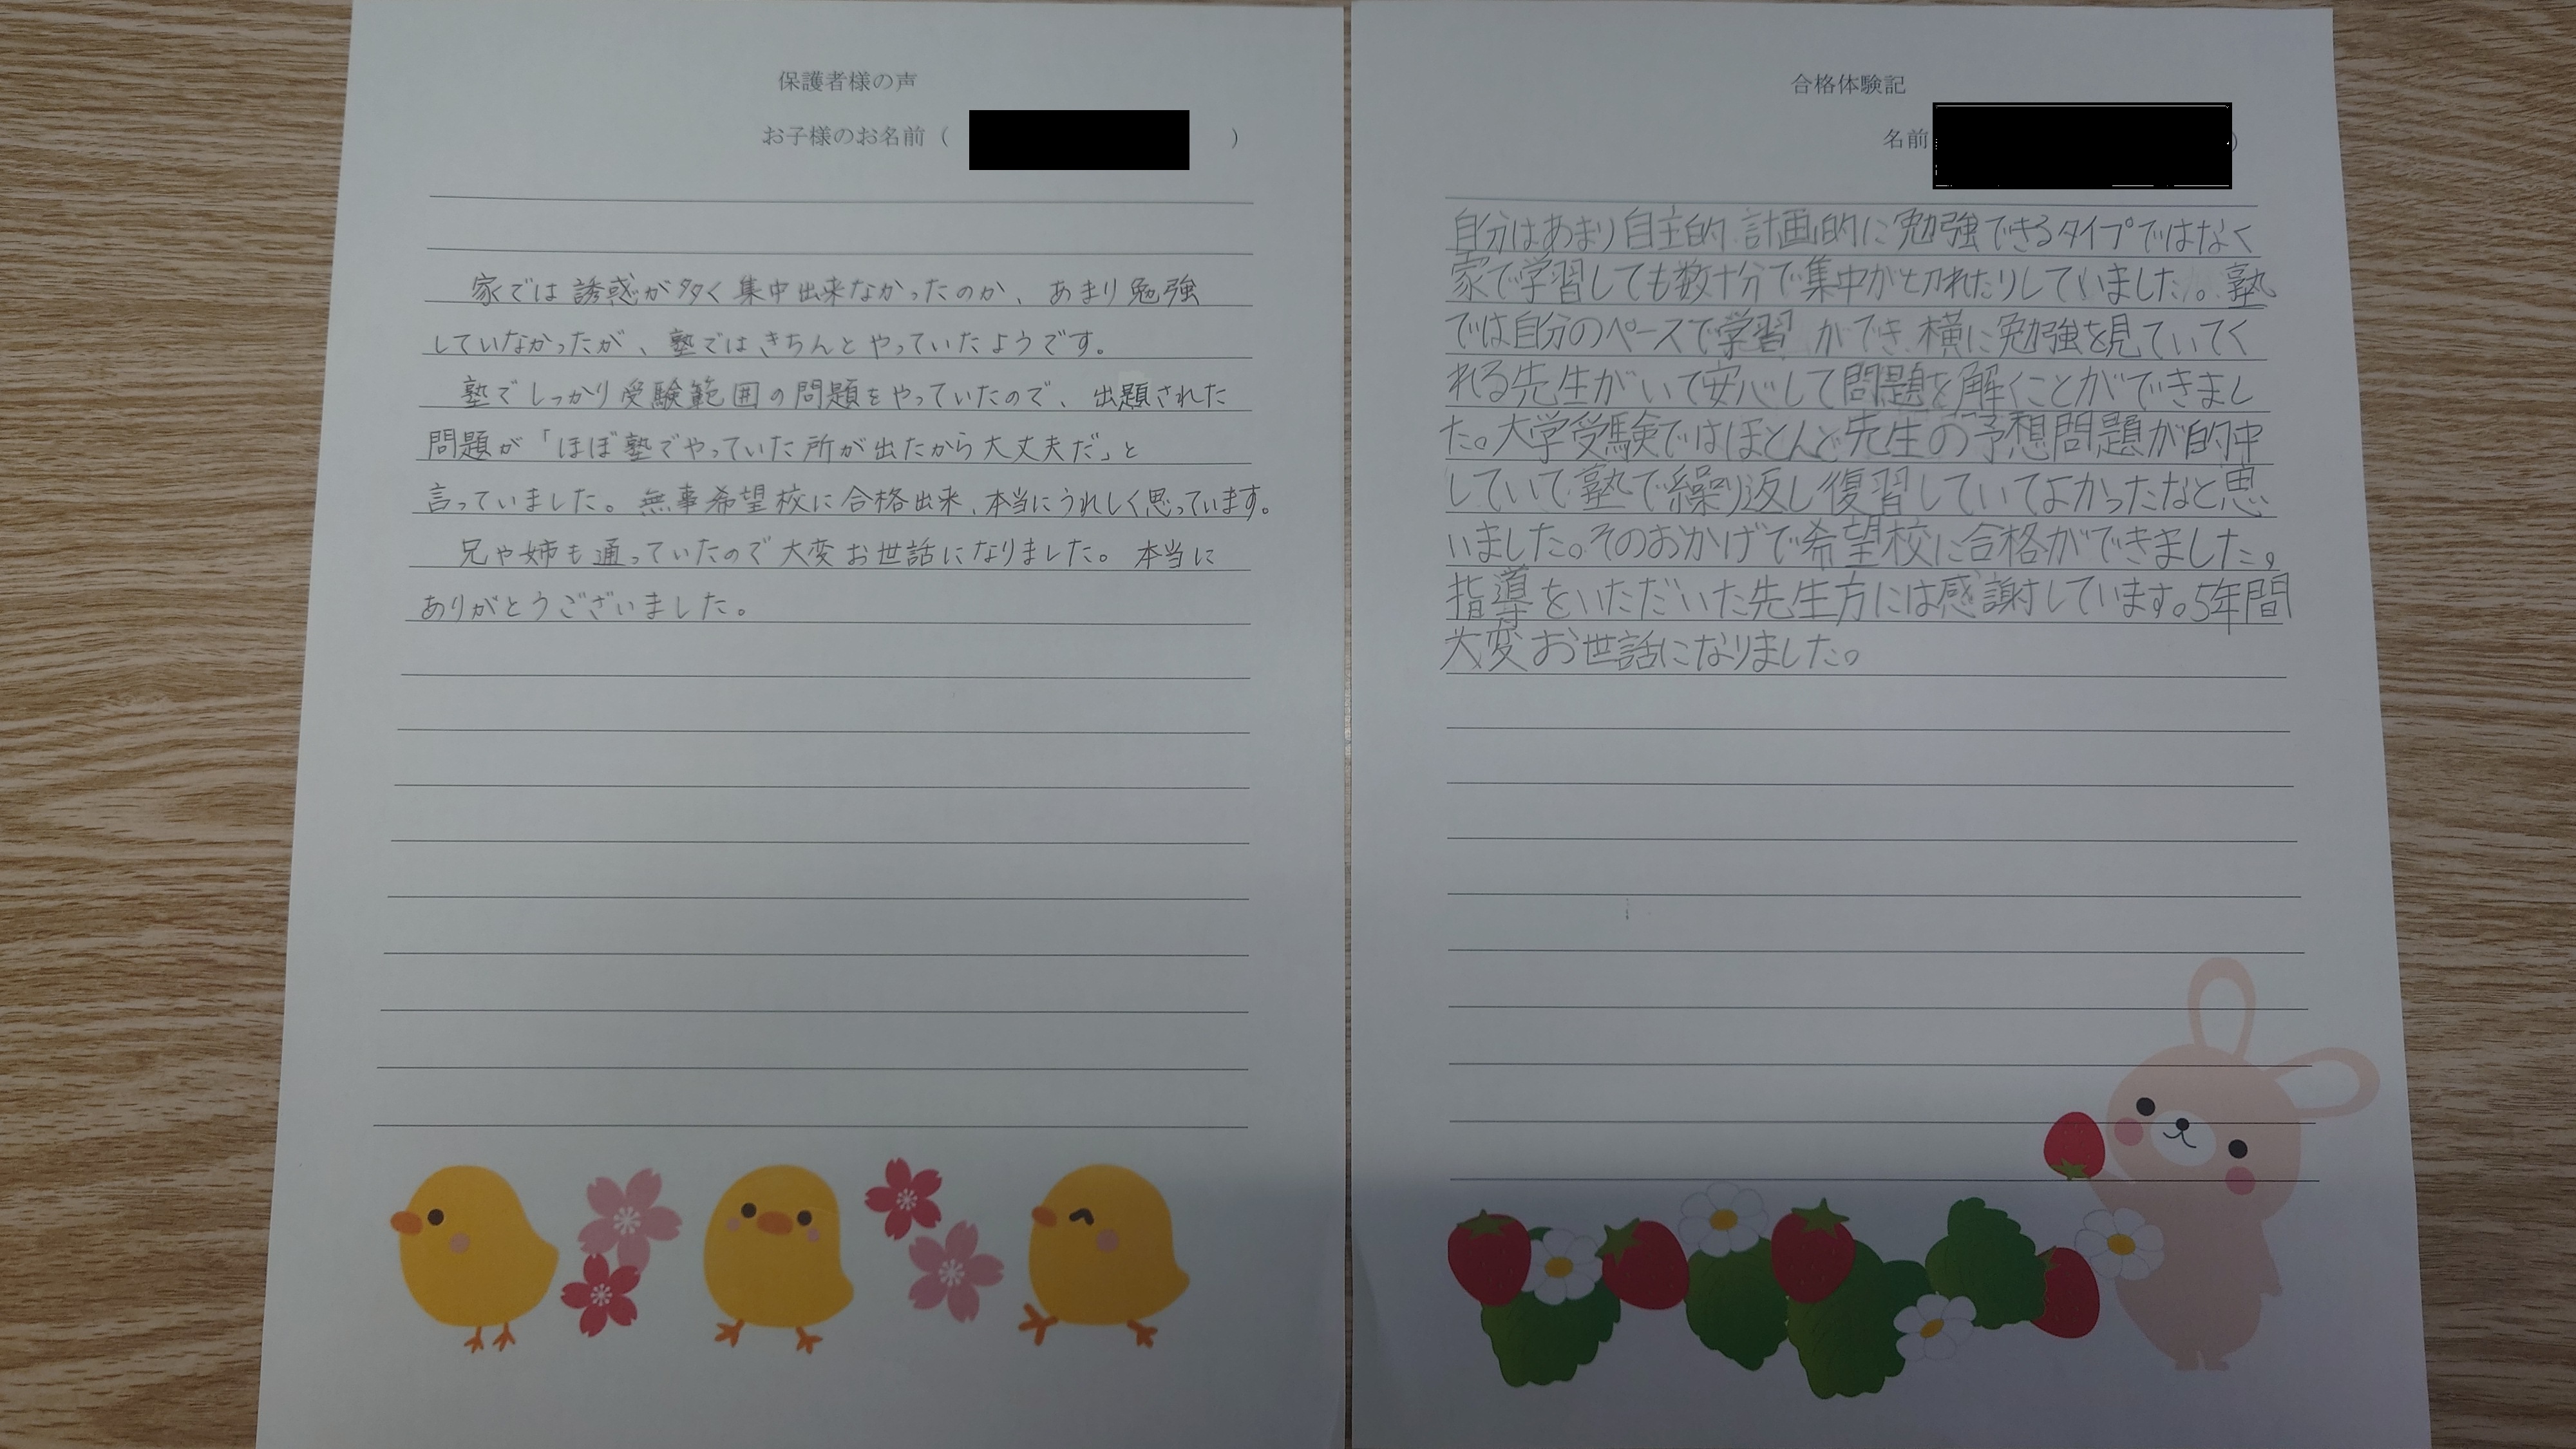 保護者様の声
お子様のお名前（　　　）
家では誘惑が多く集中出来なかったのか、あまり勉強
していなかったが、塾ではきちんとやっていたようです。
塾でしっかり受験範囲の問題をやっていたので、出題された
問題が「ほぼ塾でやっていた所が出たから大丈夫だ」と
言っていました。無事希望校に合格出来、本当にうれしく思っています。
兄や姉も通っていたので大変お世話になりました。本当に
ありがとうございました。
合格体験記
名前　　　）
自分はあまり自主的、計画的に勉強できるタイプではなく
家で学習しても数十分で集中が切れたりしていました。塾
では自分のペースで学習ができ、横に勉強を見ていてく
れる先生がいて安心して問題を解くことができまし
た。大学受験ではほとんど先生の予想問題が的中
していて、塾で繰り返し復習していてよかったなと思
いました。そのおかげで希望校に合格ができました。
指導をいただいた先生方には感謝しています。5年間
大変お世話になりました。